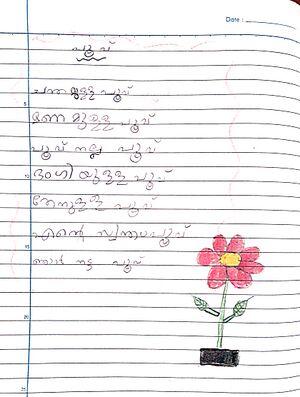 Date :
പൂവ്
ചന്തമുള്ള പൂവ്
മണമുള്ള പൂവ്
പൂവ് നല്ല പൂവ്
ഭംഗിയുള്ള പൂവ്
തേനുള്ള പൂവ്
എന്റെ സ്വന്തം പൂവ്
ഞാൻ നട്ട പൂവ്
5
10
15
20
25